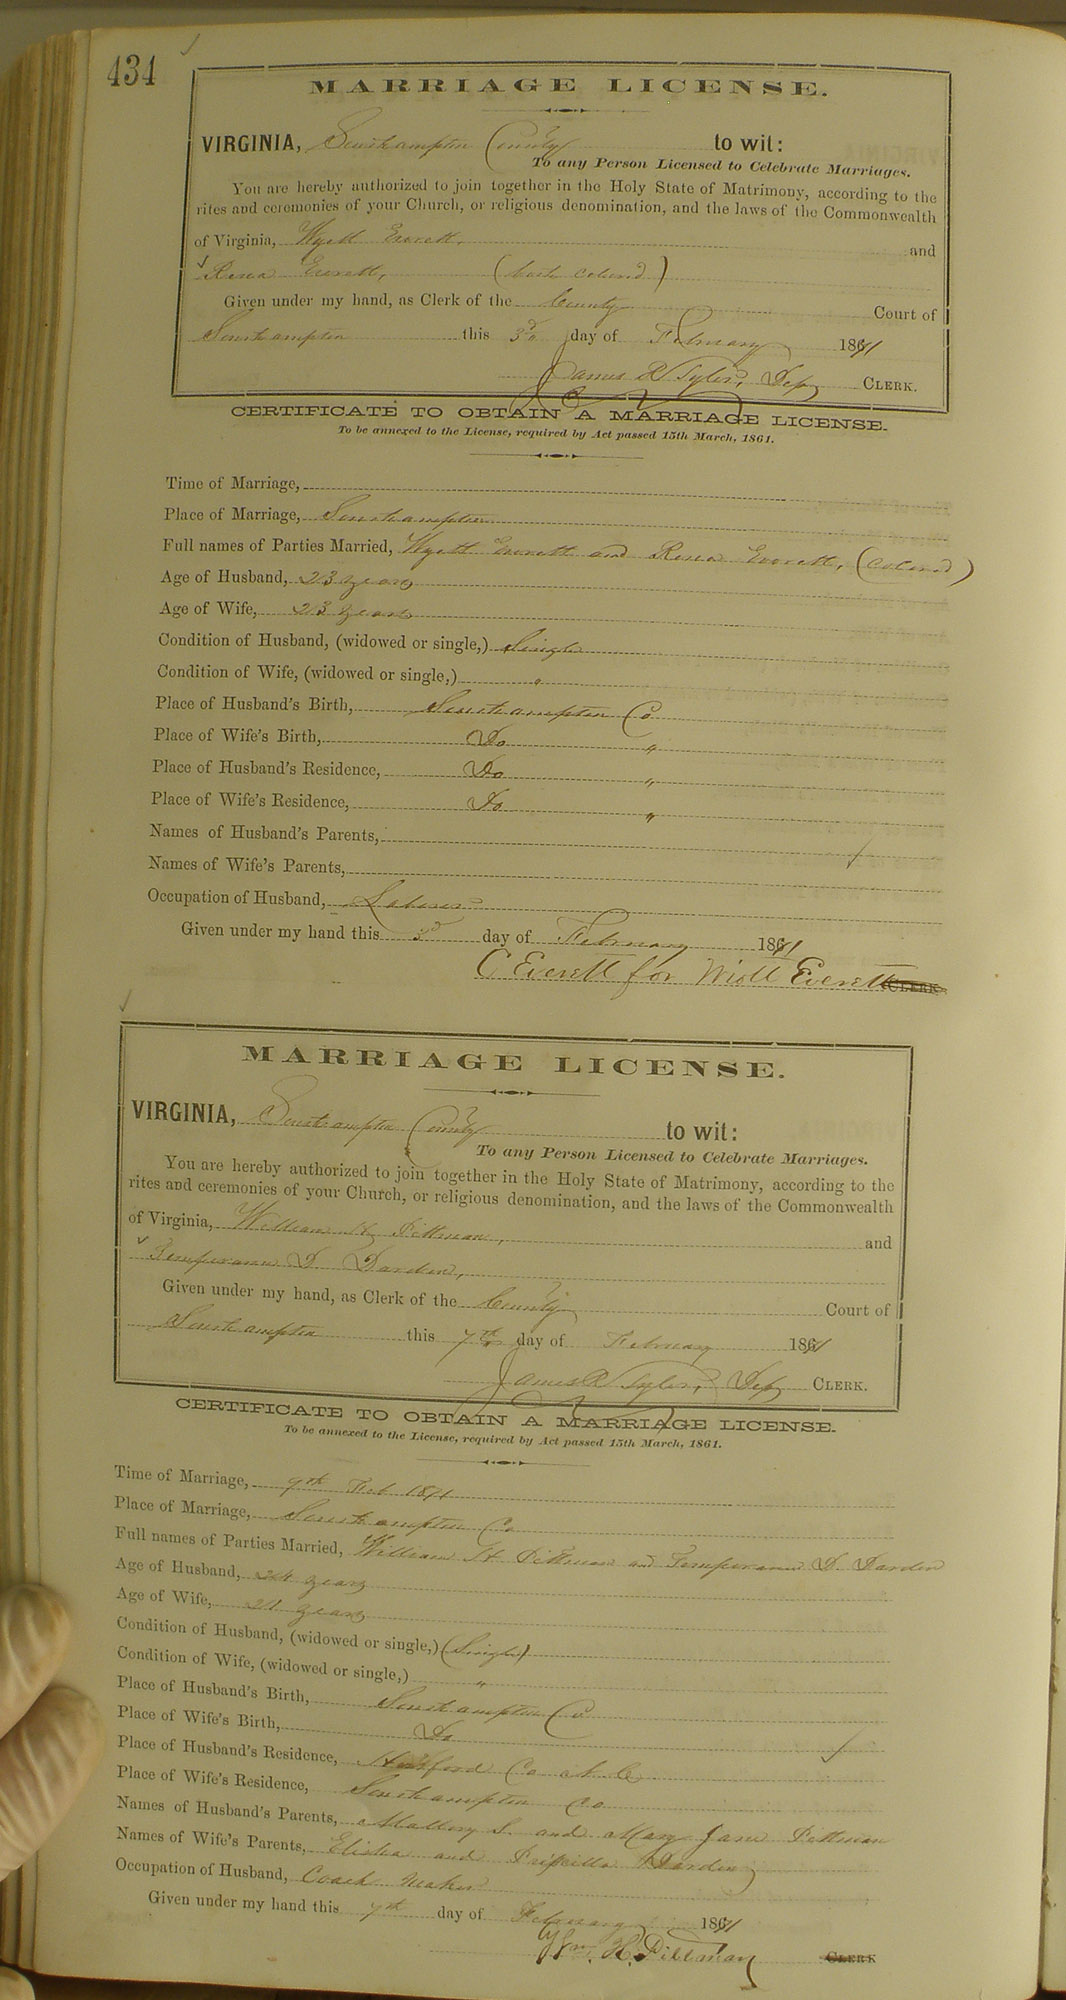 434
MARRIAGE LICENSE.
VIRGINIA, Southampton County to wit:
To any Person Licensed to Celebrate Marriages.
You are hereby authorized to join together in the Holy State of Matrimony, according to the
rites and ceremonies of your Church, or religious denomination, and the laws of the Commonwealth
of Virginia, Wyatt Everett, and
Rena Everett, (both colored)
Given under my hand, as Clerk of the County Court of
Southampton this 3d day of February 1871
James R Tyler, Dep CLERK.
CERTIFICATE TO OBTAIN A MARRIAGE LICENSE.
To be annexed to the License, required by Act passed 15th March, 1861.
Time of Marriage,
Place of Marriage, Southampton
Full names of Parties Married, Wyatt Everett and Rena Everett, (Colored)
Age of Husband, 23 years
Age of Wife, 23 years
Condition of Husband, (widowed or single,) Single
Condition of Wife, (widowed or single,) "
Place of Husband's Birth, Southampton Co
Place of Wife's Birth, Do "
Place of Husband's Residence, Do "
Place of Wife's Residence, Do "
Names of Husband's Parents,
Names of Wife's Parents,
Occupation of Husband, Laborer
Given under my hand this 3d day of February 1871
C Everett for Everett CLERK
MARRIAGE LICENSE.
VIRGINIA, Southampton County to wit:
To any Person Licensed to Celebrate Marriages.
You are hereby authorized to join together in the Holy State of Matrimony, according to the
rites and ceremonies of your Church, or religious denomination, and the laws of the Commonwealth
of Virginia, William H Pittman, and
Temperance D. Darden,
Given under my hand, as Clerk of the County Court of
Southampton this 7th day of February 1871
James R Tyler, Dep CLERK.
CERTIFICATE TO OBTAIN A MARRIAGE LICENSE.
To be annexed to the License, required by Act passed 15th March, 1861.
Time of Marriage, 9th Feb 1871
Place of Marriage, Southampton Co
Full names of Parties Married, William H Pittman and Temperance D. Darden
Age of Husband, 24 years
Age of Wife, 21 years
Condition of Husband, (widowed or single,) (Single)
Condition of Wife, (widowed or single,) "
Place of Husband's Birth, Southampton Co
Place of Wife's Birth, Do
Place of Husband's Residence, Hertford Co N C
Place of Wife's Residence, Southampton Co
Names of Husband's Parents, Mallory S. and Mary Jane Pittman
Names of Wife's Parents, Elisha and Priscilla Darden
Occupation of Husband, Coach Maker
Given under my hand this 7th day of February 1871
Wm. H. Pittman CLERK